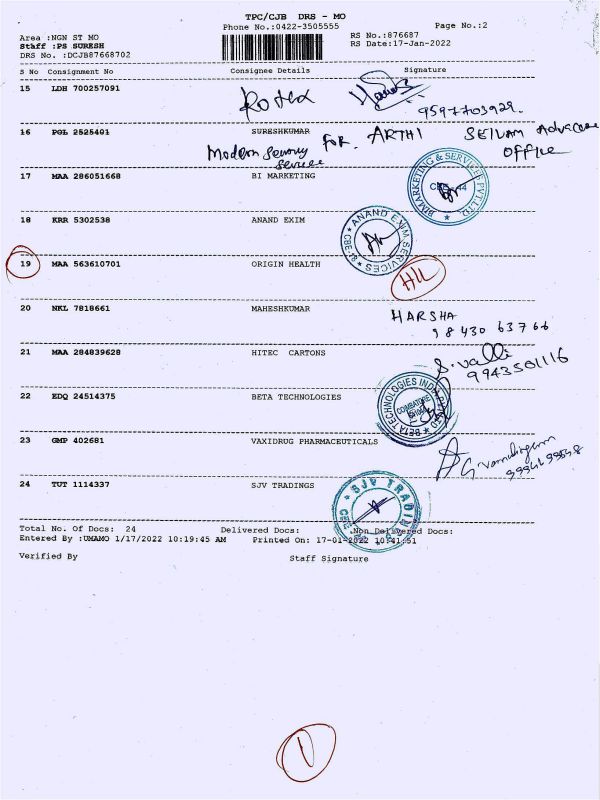 TPC/CJB DRS - MO
Phone No.:0422-3505555
Page No.:2
Area :NGN ST MO
RS No.:876687
Staff :PS SURESH
RS Date:17-Jan-2022
DRS No. :DCJB87668702
S No Consignment No Consignee Details Signature
15 LDH 700257091
9597703929.
16 PGL 2525401 SURESHKUMAR FOR. ARTHI SELVAM Advocate
Modern Service office
17 MAA 286051668 BI MARKETING
BIMARKETING & SERVICES PVT LTD.
18 KRR 5302538 ANAND EXIM
ANAND EXIM SERVICES
19 MAA 563610701 ORIGIN HEALTH
20 NKL 7818661 MAHESHKUMAR HARSHA
98430 63766
21 MAA 284839628 HITEC CARTONS S.valli
9943501116
22 EDQ 24514375 BETA TECHNOLOGIES
BETA TECHNOLOGIES COIMBATORE
23 GMP 402681 VAXIDRUG PHARMACEUTICALS
24 TUT 1114337 SJV TRADINGS
SJV TRADINGS
Total No. Of Docs: 24 Delivered Docs: Non Delivered Docs:
Entered By :UMAMO 1/17/2022 10:19:45 AM Printed On: 17-01-2022 10:41:51
Verified By Staff Signature
1